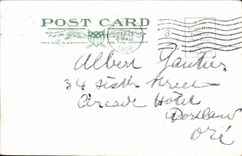 POST CARD
1908
Albert Gautier
34 sixth Street
Arcade Hotel
Portland
Ore